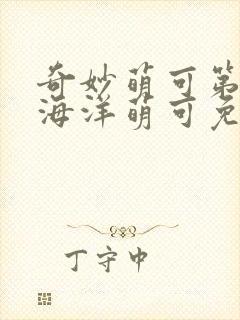 奇妙萌可第
海洋萌可免
丁守中